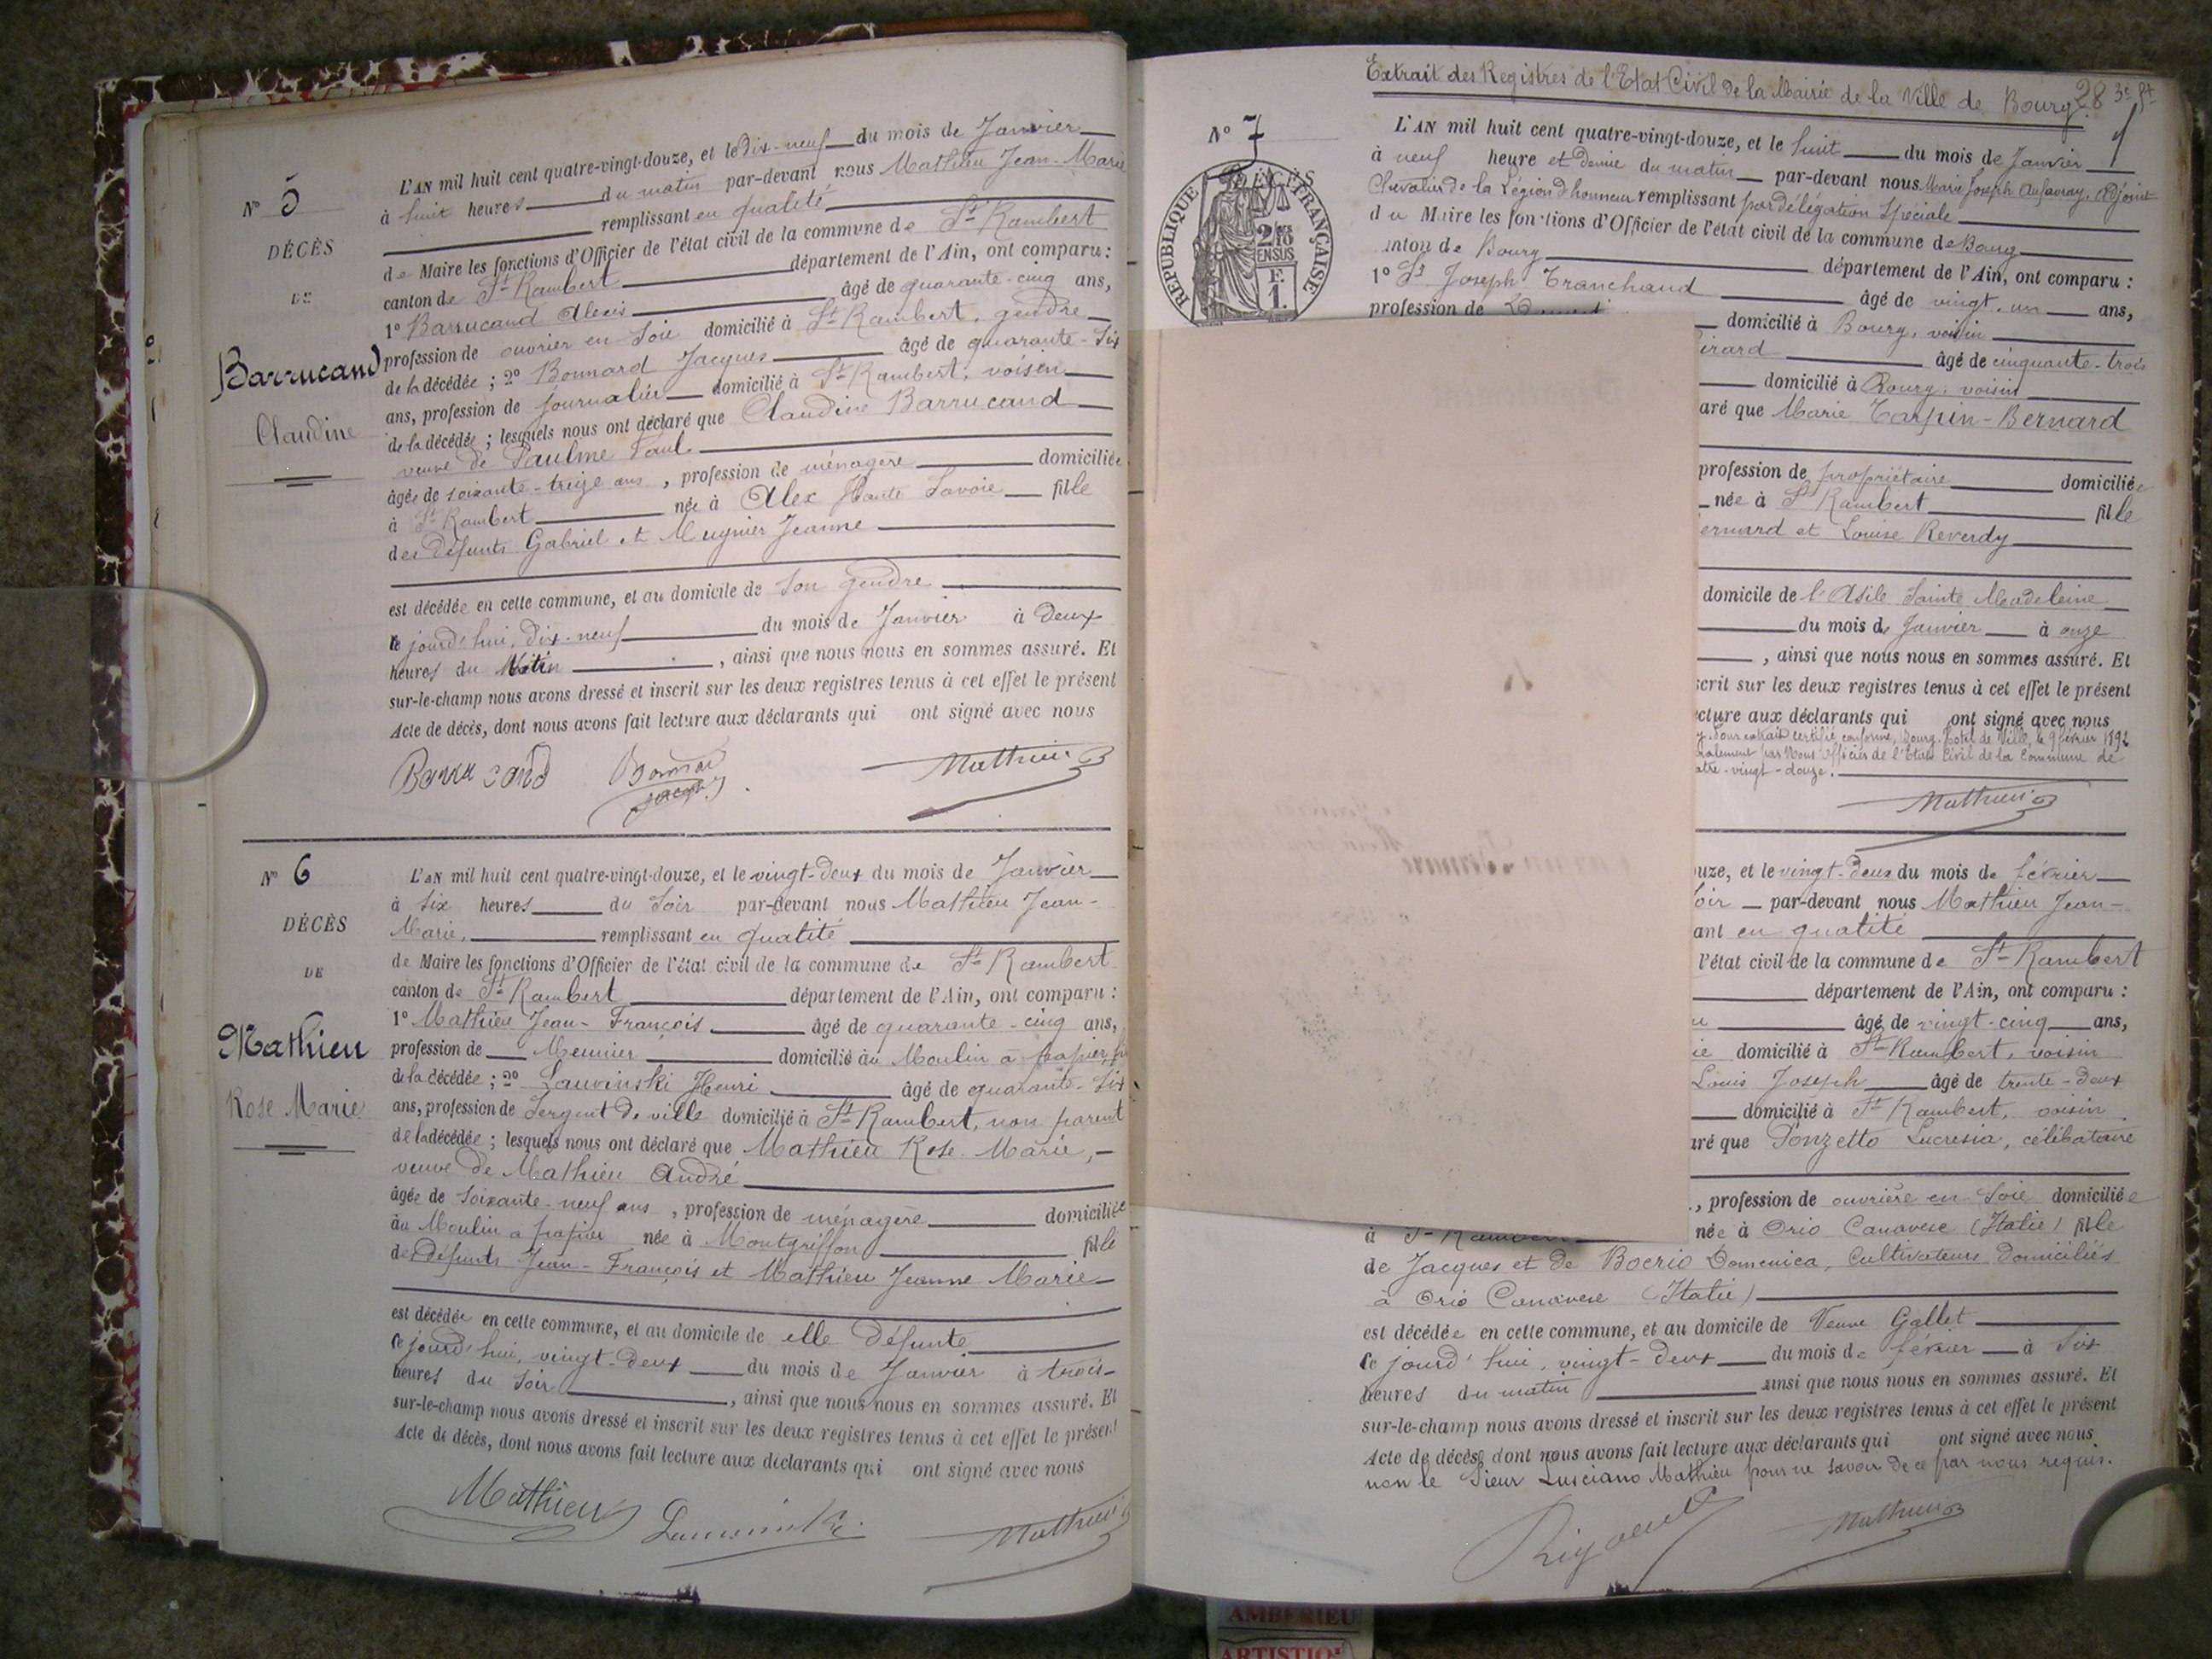 N° 5
DÉCÈS
DE
Barrucand
Claudine
L'AN mil huit cent quatre-vingt-douze, et le dix-neuf du mois de Janvier
à huit heures du matin par-devant nous Mathieu Jean-Marie
remplissant en qualité
de Maire les fonctions d'Officier de l'état civil de la commune de St Rambert
canton de St Rambert département de l'Ain, ont comparu :
1° Barrucand Alexis âgé de quarante-cinq ans,
profession de ouvrier en soie domicilié à St Rambert, gendre
de la décédée ; 2° Bonnard Jacques âgé de quarante-six
ans, profession de journalier domicilié à St Rambert, voisin
de la décédée ; lesquels nous ont déclaré que Claudine Barrucand
veuve de Paulme Paul
âgée de soixante-treize ans, profession de ménagère domiciliée
à St Rambert née à Alex Haute Savoie fille
des défunts Gabriel et Mugnier Jeanne
est décédée en cette commune, et au domicile de son gendre
ce jourd'hui, dix-neuf du mois de Janvier à deux
heures du Matin, ainsi que nous nous en sommes assuré. Et
sur-le-champ nous avons dressé et inscrit sur les deux registres tenus à cet effet le présent
Acte de décès, dont nous avons fait lecture aux déclarants qui ont signé avec nous
Barrucand Bonnard Jacques Mathieu
N° 6
DÉCÈS
DE
Mathieu
Rose Marie
L'AN mil huit cent quatre-vingt-douze, et le vingt-deux du mois de Janvier
à six heures du soir par-devant nous Mathieu Jean-
Marie, remplissant en qualité
de Maire les fonctions d'Officier de l'état civil de la commune de St Rambert
canton de St Rambert département de l'Ain, ont comparu :
1° Mathieu Jean-François âgé de quarante-cinq ans,
profession de Meunier domicilié au Moulin à papier,
de la décédée ; 2° Lauvinski Henri âgé de quarante-six
ans, profession de Sergent de ville domicilié à St Rambert, non parent
de la décédée ; lesquels nous ont déclaré que Mathieu Rose Marie,
veuve de Mathieu André
âgée de soixante-neuf ans, profession de ménagère domiciliée
au Moulin à papier née à Montgriffon fille
des défunts Jean-François et Mathieu Jeanne Marie
est décédée en cette commune, et au domicile de elle défunte
ce jourd'hui, vingt-deux du mois de Janvier à trois
heures du soir, ainsi que nous nous en sommes assuré. Et
sur-le-champ nous avons dressé et inscrit sur les deux registres tenus à cet effet le présent
Acte de décès, dont nous avons fait lecture aux déclarants qui ont signé avec nous
Mathieu Mathieu
Extrait des Registres de l'Etat Civil de la Mairie de la Ville de Bourg. 28 3e
N° 7
DÉCÈS
RÉPUBLIQUE FRANÇAISE
2/10 EN SUS
F.
1.
L'AN mil huit cent quatre-vingt-douze, et le huit du mois de Janvier
à neuf heure et demie du matin par-devant nous Marie Joseph Aufavray, Adjoint
Chevalier de la Légion d'honneur remplissant par délégation spéciale
du Maire les fonctions d'Officier de l'état civil de la commune de Bourg
anton de Bourg département de l'Ain, ont comparu :
1° Sr Joseph Tranchand âgé de vingt-un ans,
profession de domicilié à Bourg, voisin
irard âgé de cinquante-trois
domicilié à Bourg, voisin
aré que Marie Tarpin-Bernard
profession de propriétaire domiciliée
née à St Rambert fille
ernard et Louise Reverdy
domicile de l'Asile Sainte Madeleine
du mois de Janvier à onze
, ainsi que nous nous en sommes assuré. Et
scrit sur les deux registres tenus à cet effet le présent
cture aux déclarants qui ont signé avec nous
Pour extrait certifié conforme, Bourg, Hotel de Ville, le 9 février 1892
par Nous Officier de l'Etat Civil de la Commune de
atre-vingt-douze.
Mathieu
ouze, et le vingt-deux du mois de février
soir par-devant nous Mathieu Jean-
ant en qualité
l'état civil de la commune de St Rambert
département de l'Ain, ont comparu :
âgé de vingt-cinq ans,
ie domicilié à St Rambert, voisin
Louis Joseph âgé de trente-deux
domicilié à St Rambert, voisin
aré que Ponzetto Lucresia, célibataire
, profession de ouvrière en soie domiciliée
à St Rambert née à Orio Canavese (Italie) fille
de Jacques et de Boerio Domenica, cultivateurs domiciliés
à Orio Canavese (Italie)
est décédée en cette commune, et au domicile de Veuve Gallet
ce jourd'hui, vingt-deux du mois de février à six
heures du matin ainsi que nous nous en sommes assuré. Et
sur-le-champ nous avons dressé et inscrit sur les deux registres tenus à cet effet le présent
Acte de décès dont nous avons fait lecture aux déclarants qui ont signé avec nous
non le Sieur Lusciano Mathieu pour ne savoir de ce par nous requis.
Rigaud Mathieu
AMBERIEU